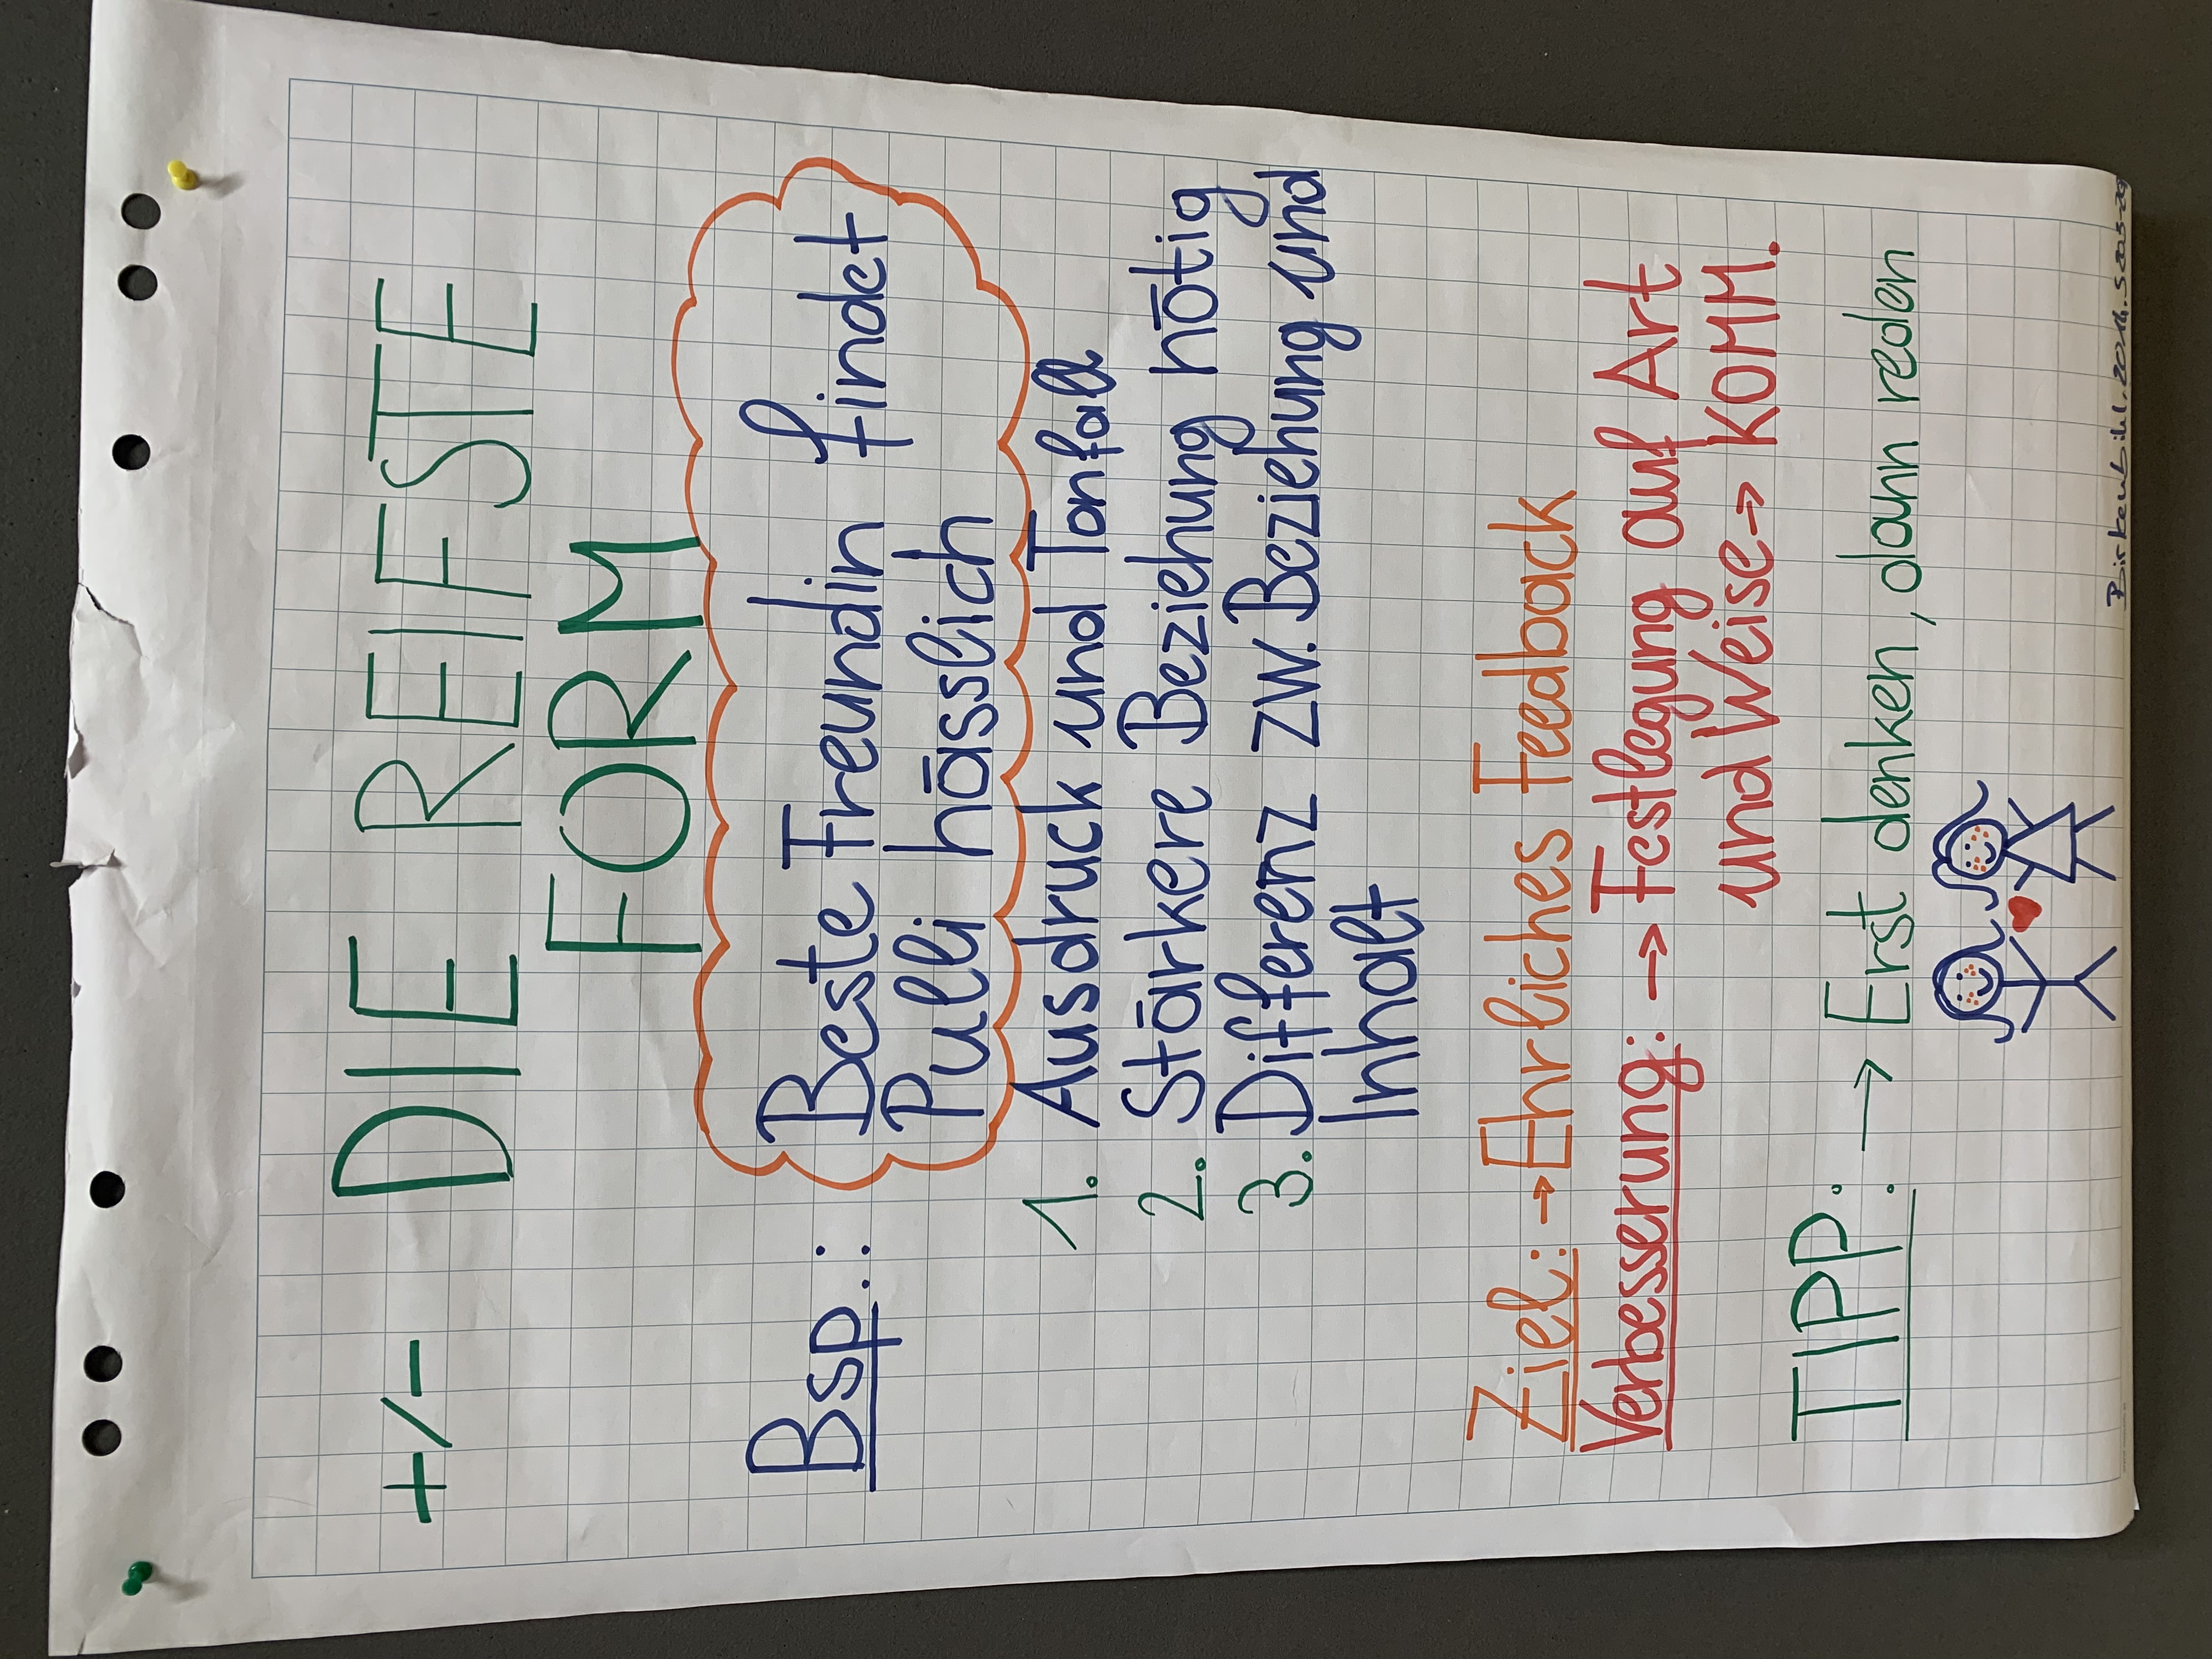 +/- DIE REIFESTE
FORM
Bsp.: Beste Freundin findet
Pulli hässlich
1. Ausdruck und Tonfall
2. Stärkere Beziehung nötig
3. Differenz zw. Beziehung und
Inhalt
Ziel: → Ehrliches Feedback
Verbesserung: → Festlegung auf Art
und Weise → KOMM.
TIPP: → Erst denken, dann reden
Birkenbihl, 2014, S.